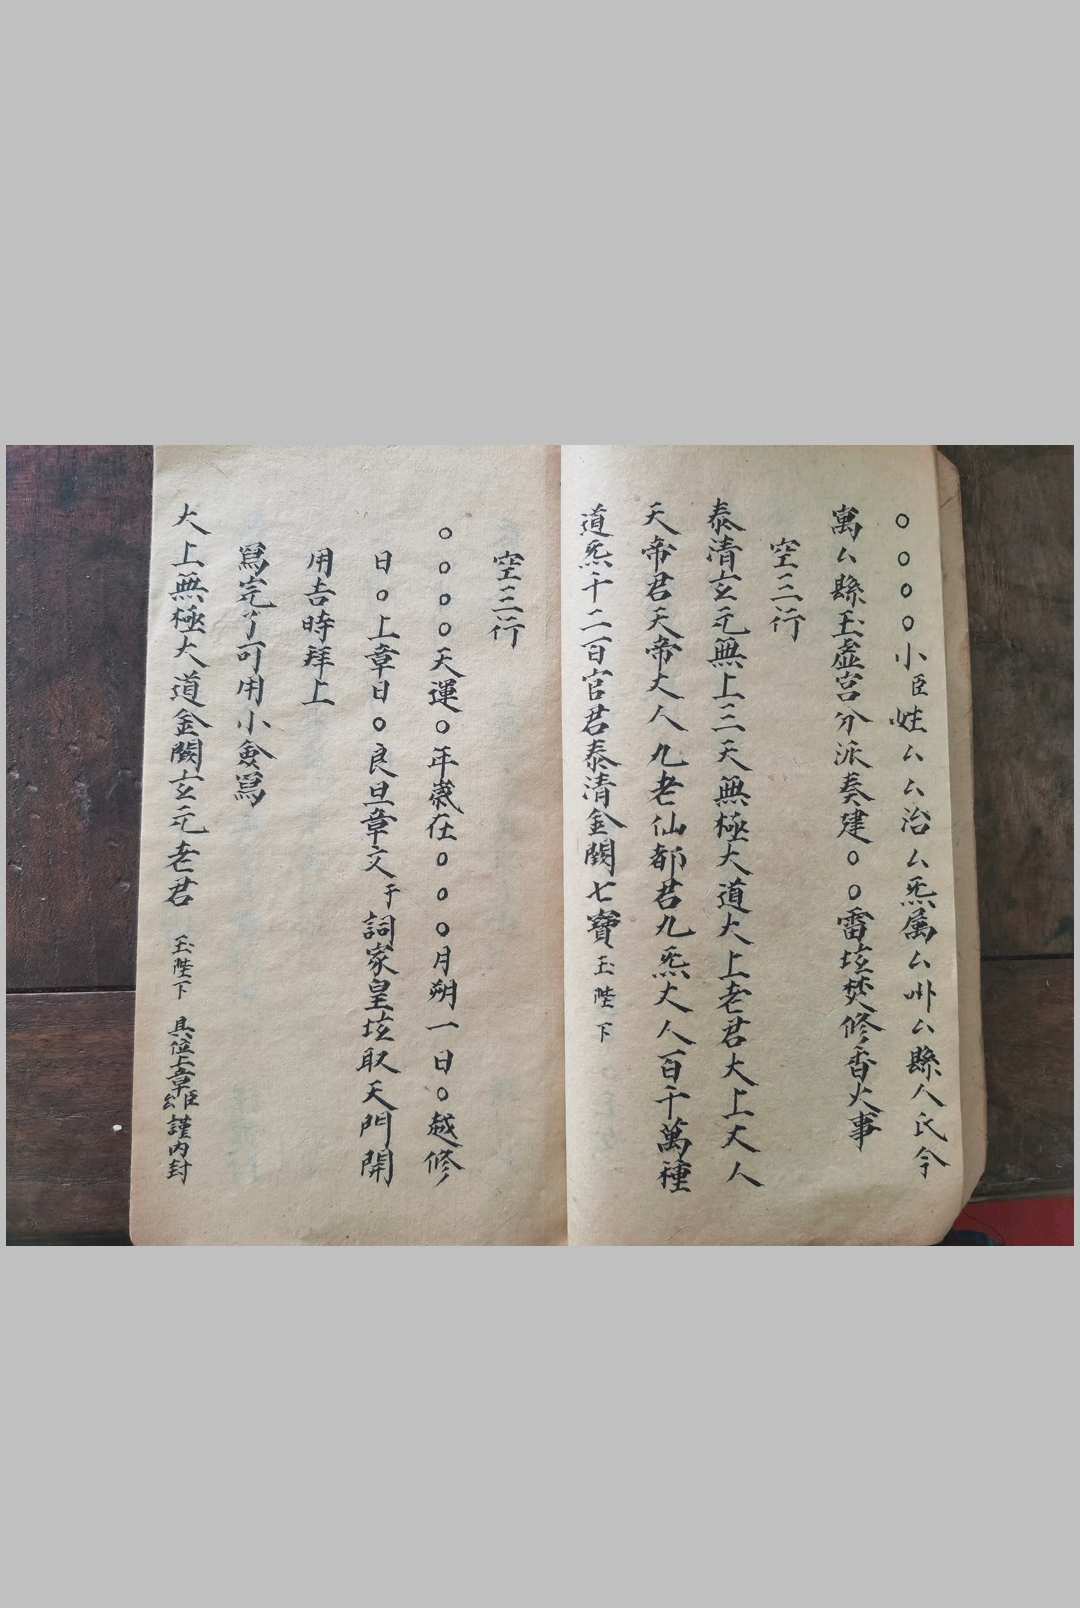 ○○○○小臣姓厶厶治厶炁属厶州厶縣人氏今
寓厶縣玉虛宮分派奏建○○雷垓焚修香火事
空三行
泰清玄元無上三天無極大道太上老君太上丈人
天帝君天帝丈人九老仙都君九炁丈人百千萬種
道炁千二百官君泰清金闕七寶玉陛下
空三行
○○○○天運○年歲在○○○月朔一日○越修
日○上章日○良旦章文于詞家皇垓取天門開
用吉時拜上
寫完了可用小寫
太上無極大道金闕玄元老君 玉陛下 具位上章臣厶謹內封